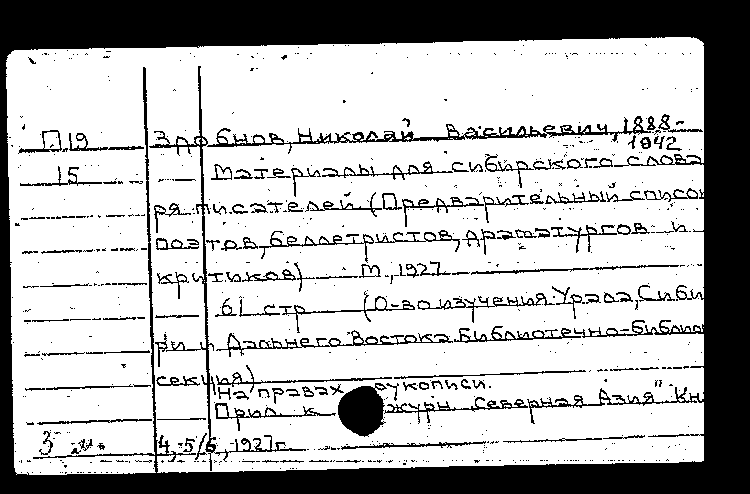 П19 Здобнов, Николай Васильевич, 1888-
1942
15 Материалы для сибирского слова
ря писателей (Предварительный список
поэтов, беллетристов, драматургов и
критиков) М, 1927
61 стр (О-во изучения Урала, Сиби
ри и Дальнего Востока. Библиотечно-библио
секция)
На правах рукописи.
Прил. к журн. Северная Азия" Кн
3 4,-5/6, 1927г.